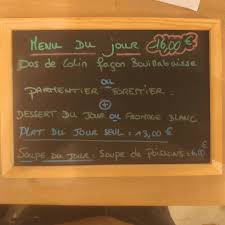 MENU DU JOUR 16,00 €
Dos de Colin façon Bouillabaisse
ou
PARMENTIER FORESTIER
+
DESSERT DU JOUR ou FROMAGE BLANC
PLAT DU JOUR SEUL = 13,00 €
SOUPE DU JOUR: Soupe de Poissons = 6,00 €